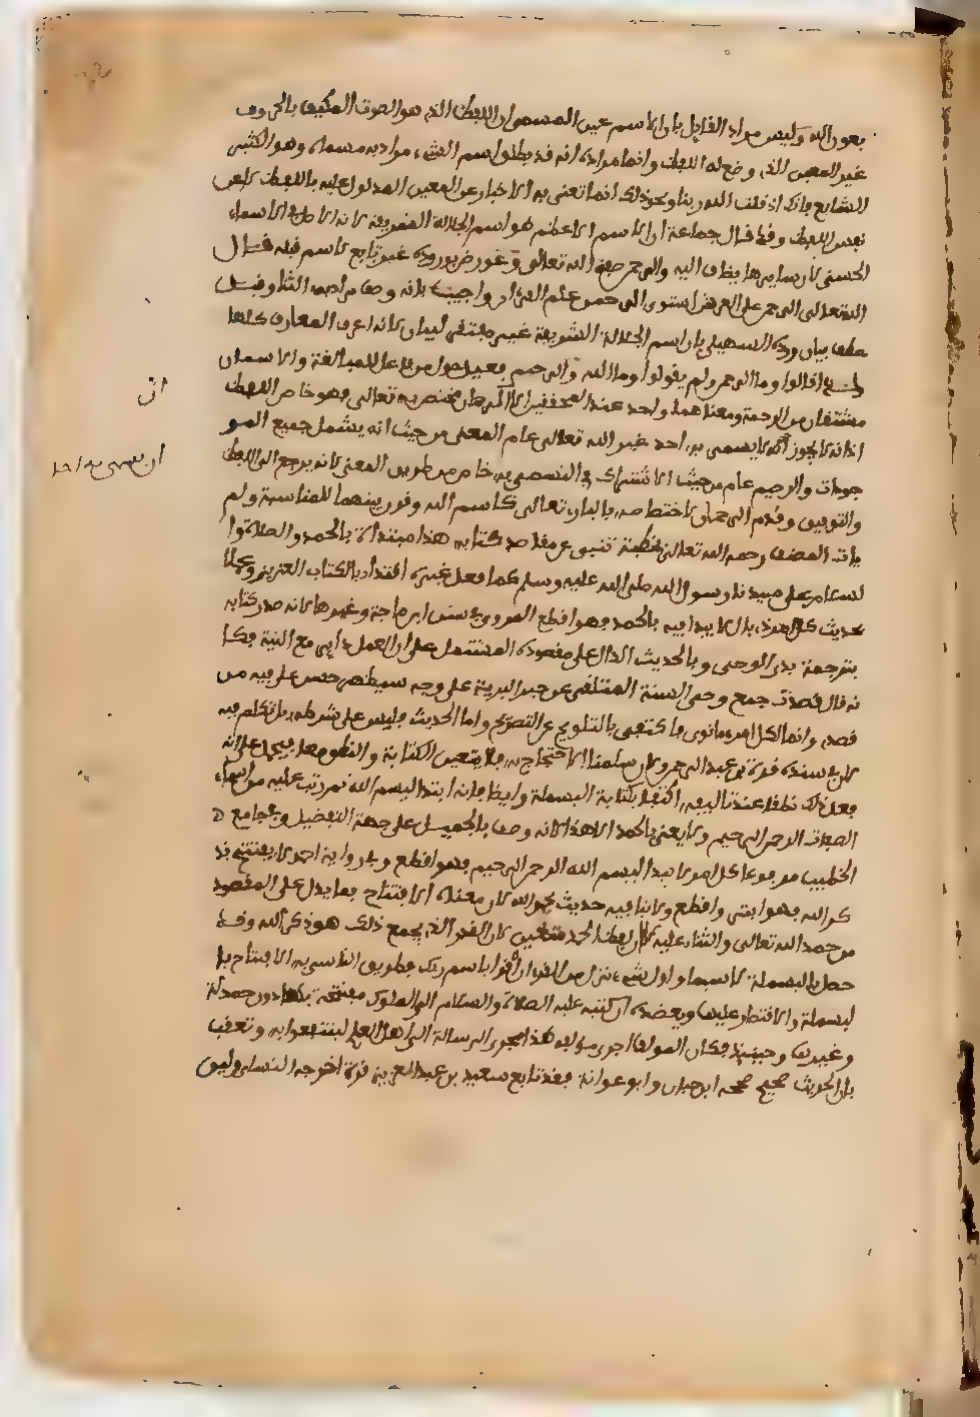 بعون الله وليس مراد القايل بان الاسم عين المسمى ان اللفظ الذي هو الصوت المكيف بالحروف
غير المعنى الذي وضع له اللفظ وانما مراده انه قد يطلق اسم الشيء مرادا به مسماه وهو الكثير
الشايع فانك اذا قلت الله ربنا ونحو ذلك انما تعني به الاخبار عن المعنى المدلول عليه باللفظ لا عن
نفس اللفظ وقد قال جماعة ان الاسم الاعظم هو اسم الجلالة الشريفة لانه الاصل في الاسماء
الحسنى لان سايرها يضاف اليه والرحمن صفة الله تعالى وعورض بوروده غير تابع لاسم قبله قال
الله تعالى الرحمن على العرش استوى الرحمن علم القرءان واجيب بانه وصف يراد به الثنا وقيل
عطف بيان ورده السهيلي بان اسم الجلالة الشريفة غير مفتقر لبيان لانه اعرف المعارف كلها
ولذا قالوا وما الرحمن ولم يقولوا وما الله والرحيم فعيل حول من فاعل للمبالغة والاسمان
مشتقان من الرحمة ومعناهما واحد عند المحققين الا ان الرحمن مختص به تعالى فهو خاص اللفظ
اذ انه لا يجوز ان يسمى به احد غير الله تعالى عام المعنى من حيث انه يشمل جميع المو
جودات والرحيم عام من حيث الاشتراك في التسمي به خاص من طريق المعنى لانه يرجع الى اللطف
والتوفيق وقدم الرحمن لاختصاصه بالباري تعالى كاسم الله وقرن بينهما للمناسبة ولم
يات المصنف رحمه الله تعالى بخطبة تنبئ عن مقاصد كتابه هذا مبتداة بالحمد والصلاة وا
لسلام على سيدنا رسول الله صلى الله عليه وسلم كما فعل غيره اقتداء بالكتاب العزيز وعملا
بحديث كل امر ذي بال لا يبدا فيه بالحمد فهو اقطع المروي في سنن ابن ماجة وغيرها لانه صدر كتابه
بترجمة بدء الوحي وبالحديث الدال على مقصوده المشتمل على ان العمل داير مع النية فكا
نه قال قصدت جمع وحي السنة المتلقى عن خير البرية على وجه سيظهر حسن عملي فيه من
قصدي وانما لكل امرئ ما نوى فاكتفى بالتلويح عن التصريح واما الحديث فليس على شرطه بل تكلم فيه
لان في سنده قرة بن عبد الرحمن ولان سلمنا الاحتجاج به فلا يتعين الكتابة والنطق معا فيحمل على انه
فعل ذلك نطقا عند تاليفه اكتفاء بكتابة البسملة وايضا فانه ابتدا ببسم الله ثم رتب عليه من اسماء
الصفات الرحمن الرحيم ولا يعني بالحمد الا هذا لانه وصف بالجميل على جهة التفضيل وفي جامع
الخطيب مرفوعا كل امر لا يبدا ببسم الله الرحمن الرحيم فهو اقطع وفي رواية احمد لا يفتتح بذ
كر الله فهو ابتر واقطع ولا ينافيه حديث بحمد الله لان معناه الافتتاح بما يدل على المقصود
من حمد الله تعالى والثناء عليه لا ان لفظ الحمد متعين لان القدر الذي يجمع ذلك هو ذكر الله وقد
حصل بالبسملة لا سيما واول شيء نزل من القران اقرا باسم ربك فطريق التاسي به الافتتاح با
لبسملة والاقتصار عليها ويعضده ان كتبه عليه الصلاة والسلام الى الملوك مفتتحة بها دون حمدلة
وغيرها وحينئذ فكان المولف اجرى مؤلفه هذا مجرى الرسالة الى اهل العلم لينتفعوا به وتعقب
بان الحديث صحيح صححه ابن حبان وابو عوانة وقد تابع سعيد بن عبد العزيز قرة اخرجه النسايي
ان يسمى به احد